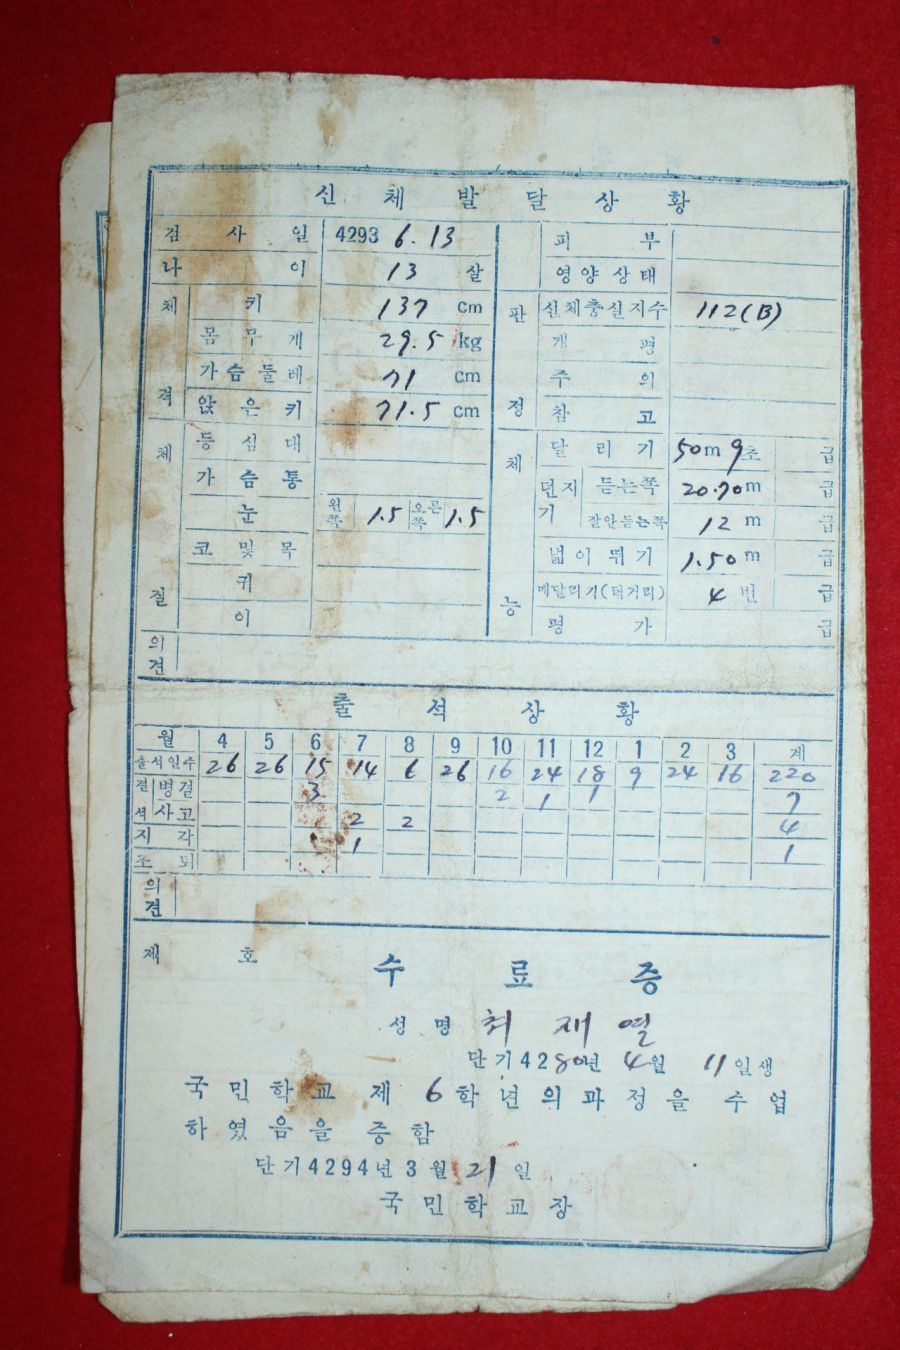 신체발달상황
검사일 4293 6.13 피부
나이 13 살 영양상태
체격 키 137 cm 판정 신체충실지수 112(B)
몸무게 29.5 kg 개평
가슴둘레 71 cm 주의
앉은키 71.5 cm 참고
체질 등심대 체능 달리기 50m 9초 급
가슴통 던지기 듣는쪽 20.70m 급
눈 왼쪽 1.5 오른쪽 1.5 잘안듣는쪽 12 m 급
코및목 넓이뛰기 1.50 m 급
귀 매달리기(턱거리) 4 번 급
이 평가 급
의견
출석상황
월 4 5 6 7 8 9 10 11 12 1 2 3 계
출석일수 26 26 15 14 6 26 16 24 18 9 24 16 220
결석 병결 3 2 1 1 7
사고 2 2 4
지각 1 1
조퇴
의견
제 호
수료증
성명 최재열
단기4280년 4월 11일생
국민학교 제 6학년의과정을 수업
하였음을 증함
단기4294년 3월 21일
국민학교장